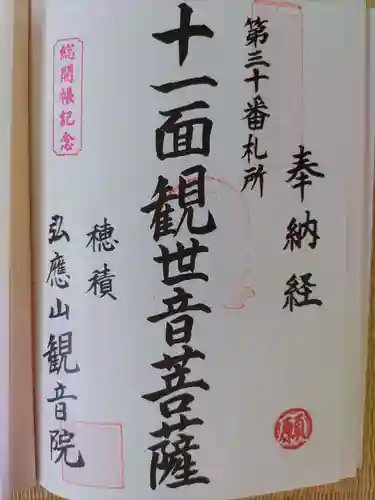 奉納経
第三十番札所
十一面観世音菩薩
総開帳記念
穂積
弘應山観音院
願